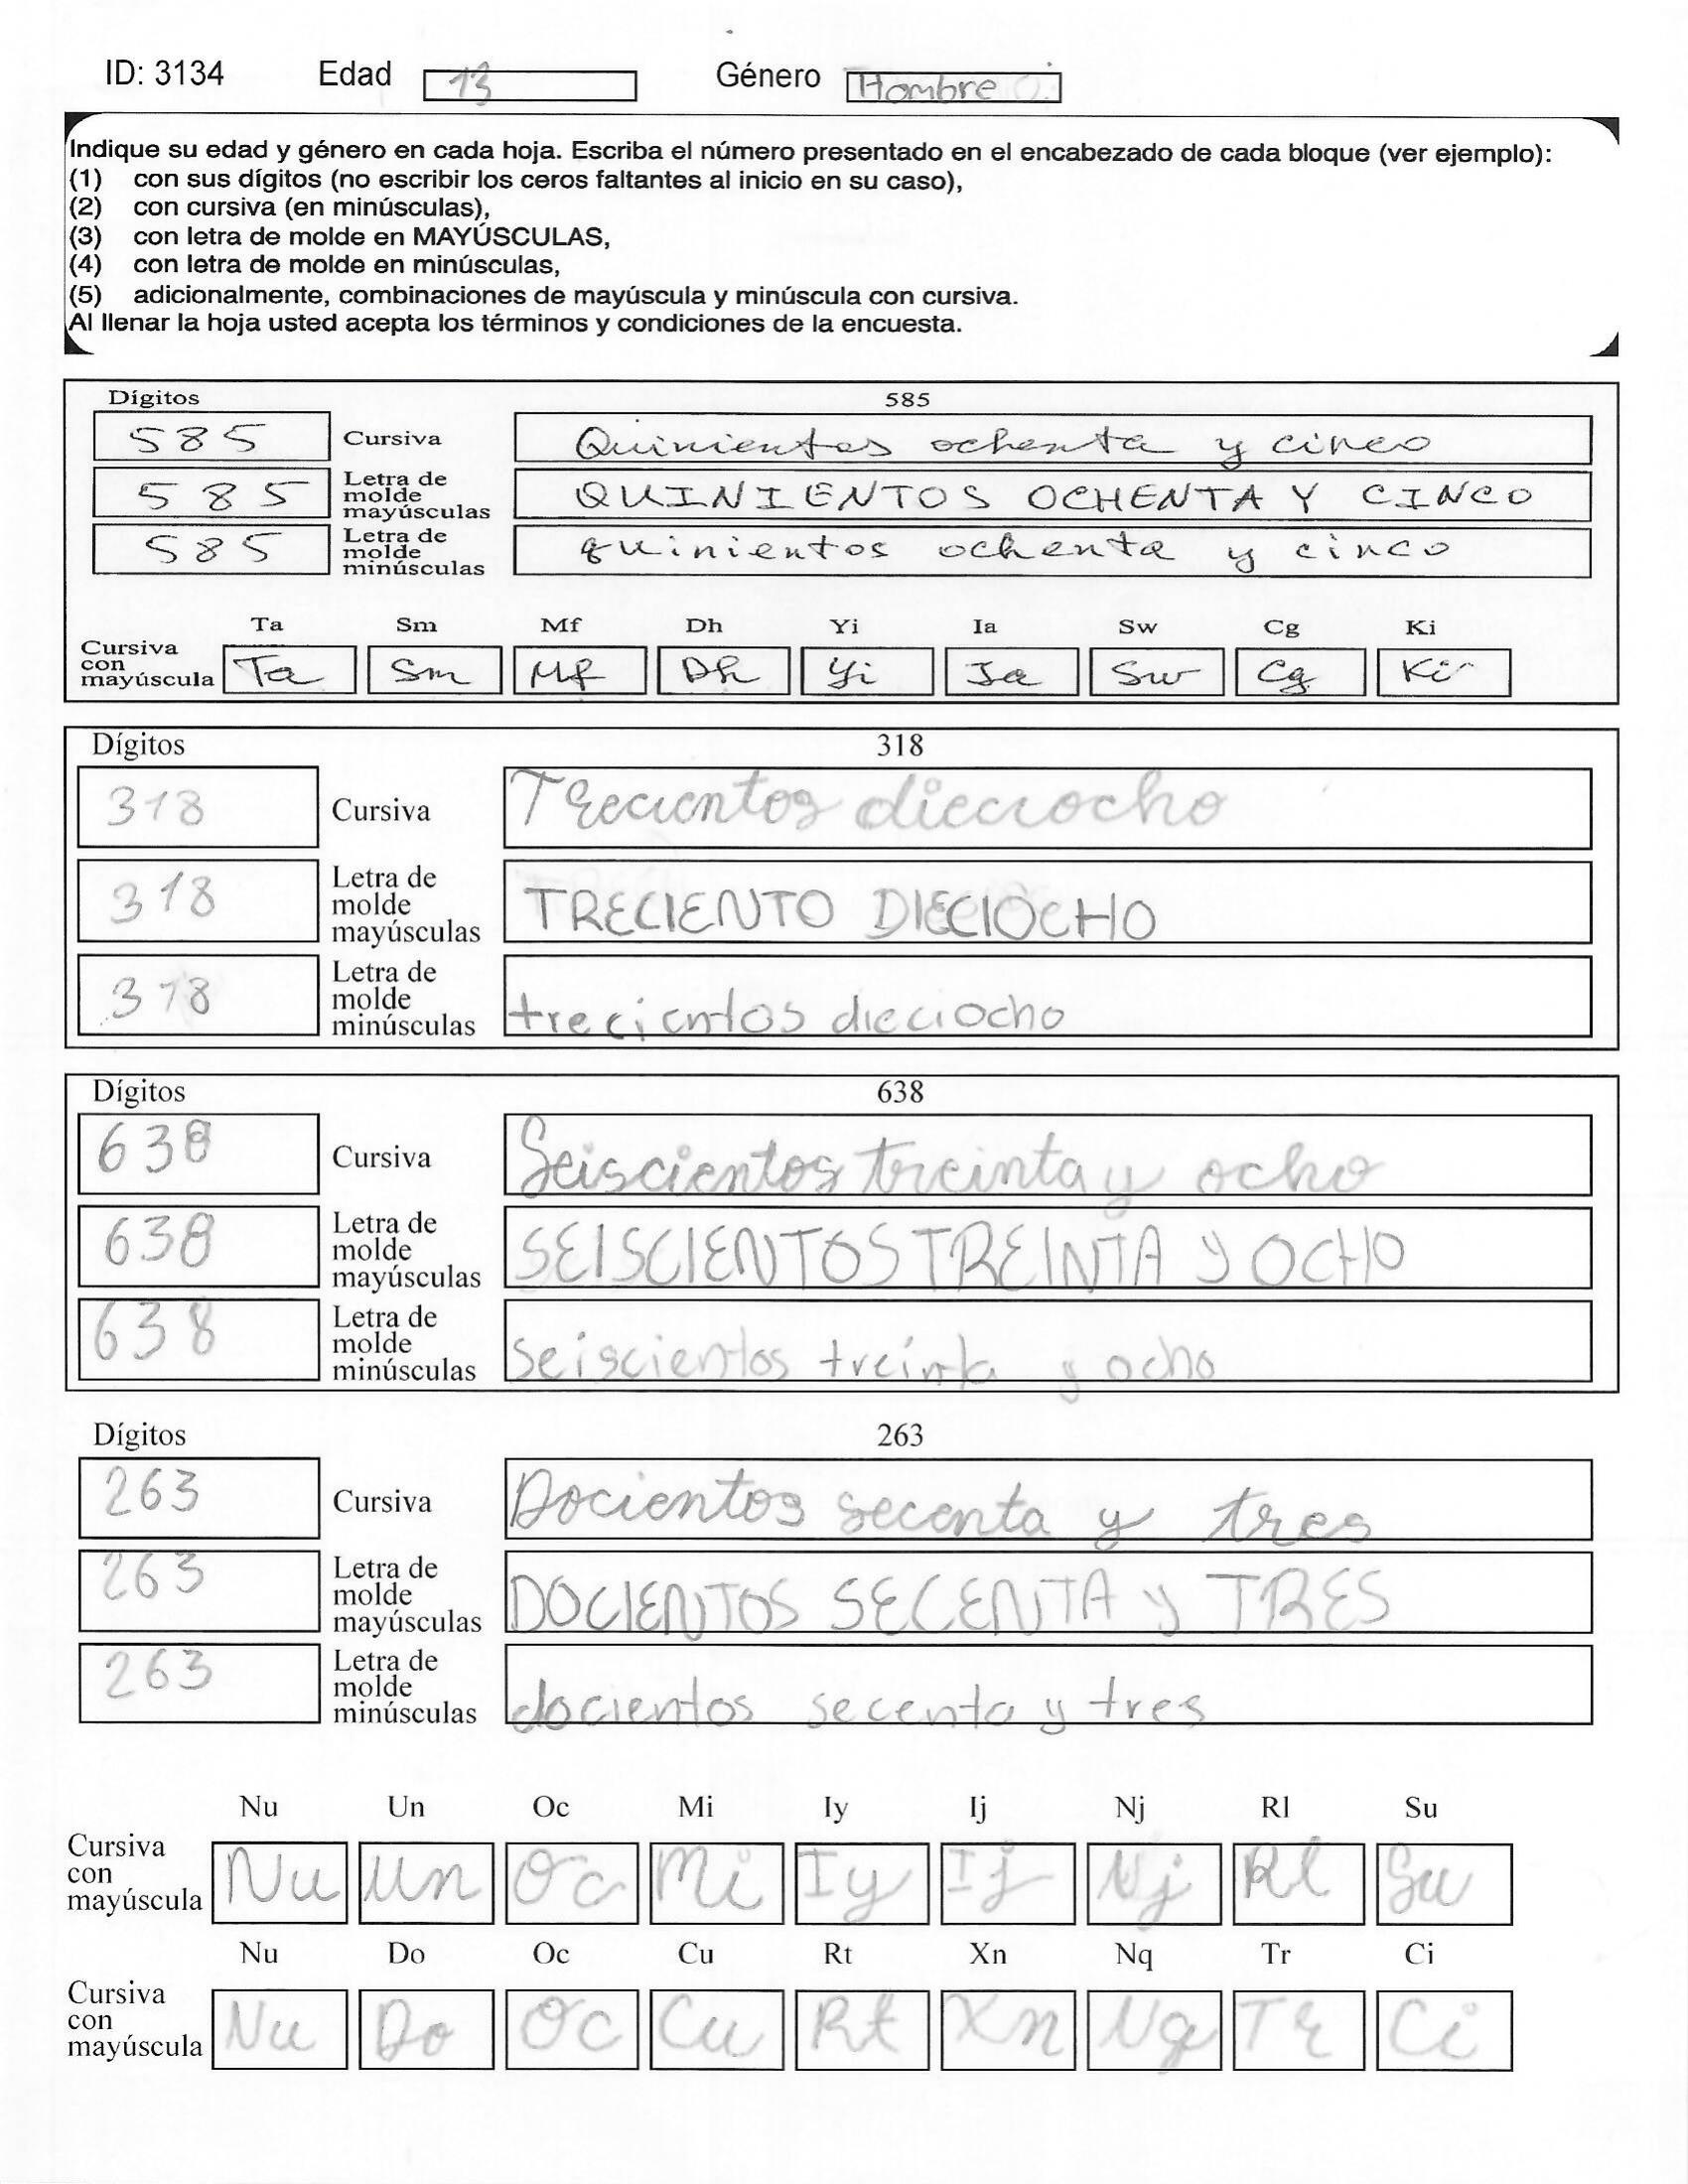 ID: 3134 Edad 13 Género Hombre
Indique su edad y género en cada hoja. Escriba el número presentado en el encabezado de cada bloque (ver ejemplo):
(1) con sus dígitos (no escribir los ceros faltantes al inicio en su caso),
(2) con cursiva (en minúsculas),
(3) con letra de molde en MAYÚSCULAS,
(4) con letra de molde en minúsculas,
(5) adicionalmente, combinaciones de mayúscula y minúscula con cursiva.
Al llenar la hoja usted acepta los términos y condiciones de la encuesta.
Dígitos 585
585 Cursiva Quinientos ochenta y cinco
585 Letra de molde mayúsculas QUINIENTOS OCHENTA Y CINCO
585 Letra de molde minúsculas quinientos ochenta y cinco
Ta Sm Mf Dh Yi Ia Sw Cg Ki
Cursiva con mayúscula Ta Sm Mf Dh Yi Ia Sw Cg Ki
Dígitos 318
318 Cursiva Trecientos dieciocho
318 Letra de molde mayúsculas TRECIENTO DIECIOCHO
318 Letra de molde minúsculas trecientos dieciocho
Dígitos 638
638 Cursiva Seiscientos treinta y ocho
638 Letra de molde mayúsculas SEISCIENTOS TREINTA y OCHO
638 Letra de molde minúsculas seiscientos treinta y ocho
Dígitos 263
263 Cursiva Docientos secenta y tres
263 Letra de molde mayúsculas DOCIENTOS SECENTA y TRES
263 Letra de molde minúsculas docientos secenta y tres
Nu Un Oc Mi Iy Ij Nj Rl Su
Cursiva con mayúscula Nu Un Oc Mi Iy Ij Nj Rl Su
Nu Do Oc Cu Rt Xn Nq Tr Ci
Cursiva con mayúscula Nu Do Oc Cu Rt Xn Nq Tr Ci